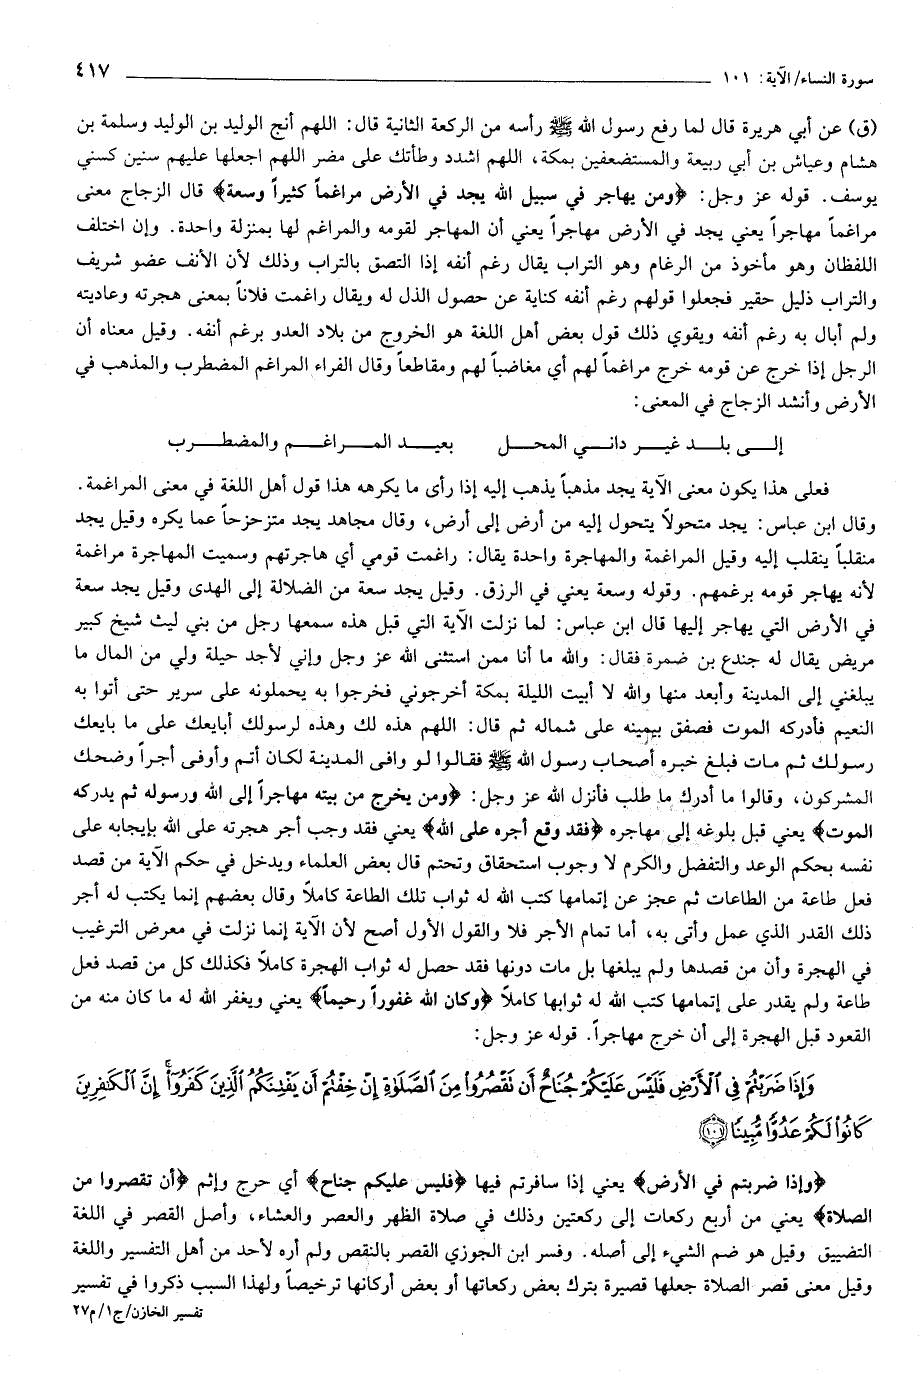 سورة النساء/الآية: ١٠١ ٤١٧
(ق) عن أبي هريرة قال لما رفع رسول الله ﷺ رأسه من الركعة الثانية قال: اللهم أنج الوليد بن الوليد وسلمة بن
هشام وعياش بن أبي ربيعة والمستضعفين بمكة، اللهم اشدد وطأتك على مضر اللهم اجعلها عليهم سنين كسني
يوسف. قوله عز وجل: ﴿ومن يهاجر في سبيل الله يجد في الأرض مراغماً كثيراً وسعة﴾ قال الزجاج معنى
مراغماً مهاجراً يعني يجد في الأرض مهاجراً يعني أن المهاجر لقومه والمراغم لها بمنزلة واحدة. وإن اختلف
اللفظان وهو مأخوذ من الرغام وهو التراب يقال رغم أنفه إذا التصق بالتراب وذلك لأن الأنف عضو شريف
والتراب ذليل حقير فجعلوا قولهم رغم أنفه كناية عن حصول الذل له ويقال راغمت فلاناً بمعنى هجرته وعاديته
ولم أبال به رغم أنفه ويقوي ذلك قول بعض أهل اللغة هو الخروج من بلاد العدو برغم أنفه. وقيل معناه أن
الرجل إذا خرج عن قومه خرج مراغماً لهم أي مغاضباً لهم ومقاطعاً وقال الفراء المراغم المضطرب والمذهب في
الأرض وأنشد الزجاج في المعنى:
إلى بلد غير داني المحل بعيد المراغم والمضطرب
فعلى هذا يكون معنى الآية يجد مذهباً يذهب إليه إذا رأى ما يكرهه هذا قول أهل اللغة في معنى المراغمة.
وقال ابن عباس: يجد متحولاً يتحول إليه من أرض إلى أرض، وقال مجاهد يجد متزحزحاً عما يكره وقيل يجد
منقلباً ينقلب إليه وقيل المراغمة والمهاجرة واحدة يقال: راغمت قومي أي هاجرتهم وسميت المهاجرة مراغمة
لأنه يهاجر قومه برغمهم. وقوله وسعة يعني في الرزق. وقيل يجد سعة من الضلالة إلى الهدى وقيل يجد سعة
في الأرض التي يهاجر إليها قال ابن عباس: لما نزلت الآية التي قبل هذه سمعها رجل من بني ليث شيخ كبير
مريض يقال له جندع بن ضمرة فقال: والله ما أنا ممن استثنى الله عز وجل وإني لأجد حيلة ولي من المال ما
يبلغني إلى المدينة وأبعد منها والله لا أبيت الليلة بمكة أخرجوني فخرجوا به يحملونه على سرير حتى أتوا به
النعيم فأدركه الموت فصفق بيمينه على شماله ثم قال: اللهم هذه لك وهذه لرسولك أبايعك على ما بايعك
رسولك ثم مات فبلغ خبره أصحاب رسول الله ﷺ فقالوا لو وافى المدينة لكان أتم وأوفى أجراً وضحك
المشركون، وقالوا ما أدرك ما طلب فأنزل الله عز وجل: ﴿ومن يخرج من بيته مهاجراً إلى الله ورسوله ثم يدركه
الموت﴾ يعني قبل بلوغه إلى مهاجره ﴿فقد وقع أجره على الله﴾ يعني فقد وجب أجر هجرته على الله بإيجابه على
نفسه بحكم الوعد والتفضل والكرم لا وجوب استحقاق وتحتم قال بعض العلماء ويدخل في حكم الآية من قصد
فعل طاعة من الطاعات ثم عجز عن إتمامها كتب الله له ثواب تلك الطاعة كاملاً وقال بعضهم إنما يكتب له أجر
ذلك القدر الذي عمل وأتى به، أما تمام الأجر فلا والقول الأول أصح لأن الآية إنما نزلت في معرض الترغيب
في الهجرة وأن من قصدها ولم يبلغها بل مات دونها فقد حصل له ثواب الهجرة كاملاً فكذلك كل من قصد فعل
طاعة ولم يقدر على إتمامها كتب الله له ثوابها كاملاً ﴿وكان الله غفوراً رحيماً﴾ يعني ويغفر الله له ما كان منه من
القعود قبل الهجرة إلى أن خرج مهاجراً. قوله عز وجل:
وَإِذَا ضَرَبْتُمْ فِي الْأَرْضِ فَلَيْسَ عَلَيْكُمْ جُنَاحٌ أَن تَقْصُرُوا مِنَ الصَّلَوٰةِ إِنْ خِفْتُمْ أَن يَفْتِنَكُمُ الَّذِينَ كَفَرُوٓا۟ ۚ إِنَّ الْكَٰفِرِينَ
كَانُوا لَكُمْ عَدُوًّا مُّبِينًا ﴿١٠١﴾
﴿وإذا ضربتم في الأرض﴾ يعني إذا سافرتم فيها ﴿فليس عليكم جناح﴾ أي حرج وإثم ﴿أن تقصروا من
الصلاة﴾ يعني من أربع ركعات إلى ركعتين وذلك في صلاة الظهر والعصر والعشاء، وأصل القصر في اللغة
التضييق وقيل هو ضم الشيء إلى أصله. وفسر ابن الجوزي القصر بالنقص ولم أره لأحد من أهل التفسير واللغة
وقيل معنى قصر الصلاة جعلها قصيرة بترك بعض ركعاتها أو بعض أركانها ترخيصاً ولهذا السبب ذكروا في تفسير
تفسير الخازن/ج١/م٢٧